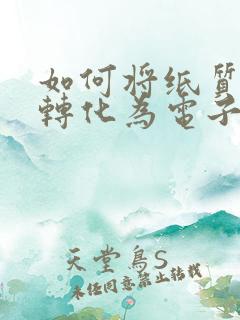 如何将纸質
轉化為電子
天堂鳥S
未经同意禁止转载